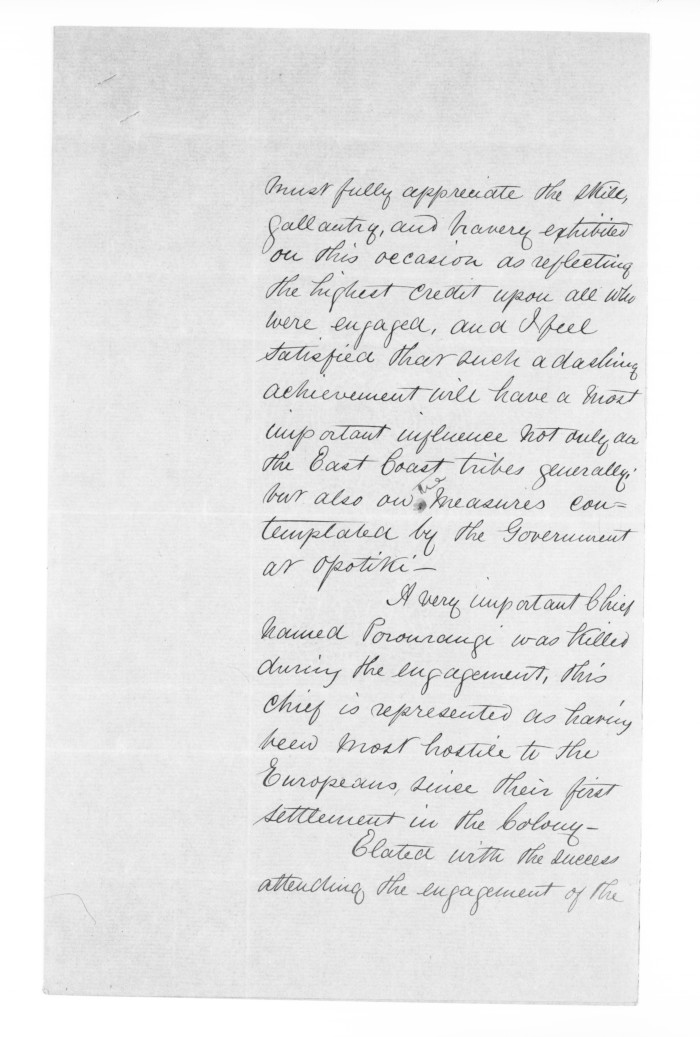 must fully appreciate the skill,
gallantry, and bravery exhibited
on this occasion as reflecting
the highest credit upon all who
were engaged, and I feel
satisfied that such a dashing
achievement will have a most
important influence not only on
the East Coast tribes generally,
but also on measures con=
templated by the Government
at Opotiki—
A very important Chief
named Porourangi was killed
during the engagement, this
chief is represented as having
been most hostile to the
Europeans, since their first
settlement in the Colony—
Elated with the success
attending the engagement of the